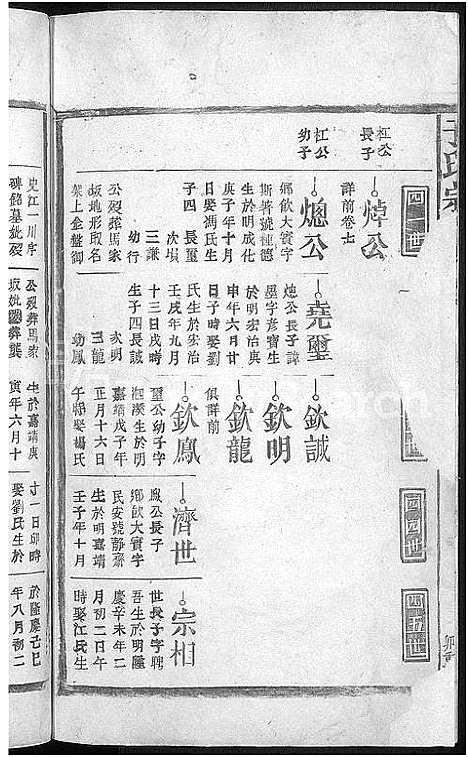 四一世
四四世
四五世
杠公
長子
焯公
詳前卷七
杠公
幼子
熜公
鄉飲大賓字
斯著號種德
生於明成化
庚子年十月
日娶馮氏生
子四 長璽
次塤
三謙
幼行
公歿葬馬家
坂地形取名
架上金盤御
堯璽
熜公長子諱
墨字彥寶生
於明宏治庚
申年六月廿
日子時娶劉
氏生於宏治
壬戌年九月
十三日戌時
生子四長誠
次明
三龍
幼鳳
欽誠
欽明
欽龍
俱詳前
欽鳳
璽公幼子字
生於明
嘉靖戊子年
正月十六日
午時娶楊氏
濟世
鳳公長子
鄉飲大賓字
民安號靜齋
生於明嘉靖
壬子年十月
宗相
世長子字聘
吾生於明隆
慶辛未年二
月初二日午
時娶江氏生
史江一川字
碑銘墓妣歿
公歿葬馬家
生於嘉靖庚
寅年六月十
寸一日卯時
娶劉氏生於
於隆慶己巳
年八月初二